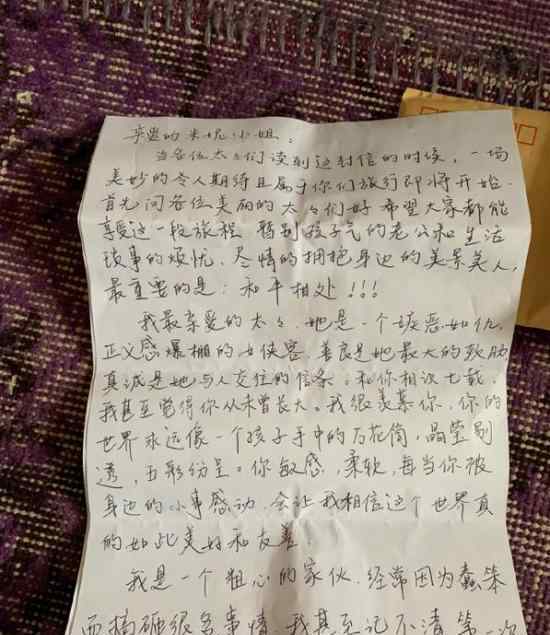 亲爱的米妮小姐：
当各位太太们读到这封信的时候，一场
美妙的令人期待且属于你们旅行即将开始.
首先问各位美丽的太太们好 希望大家都能
享受这一段旅程 暂别孩子气的老公和生活
琐事的烦忧. 尽情的拥抱身边的美景美人,
最重要的是：和平相处！！！
我最亲爱的太太. 她是一个嫉恶如仇.
正义感爆棚的女侠客. 善良是她最大的软肋
真诚是她与人交往的信条. 和你相识七载.
我甚至觉得你从未曾长大。我很羡慕你, 你的
世界永远像一个孩子手中的万花筒, 晶莹剔
透, 五彩纷呈。你敏感, 柔软, 每当你被
身边的小事感动. 会让我相信这个世界真
的如此美好和友善！
我是一个粗心的家伙. 经常因为蠢笨
而搞砸很多事情. 我甚至记不清第一次